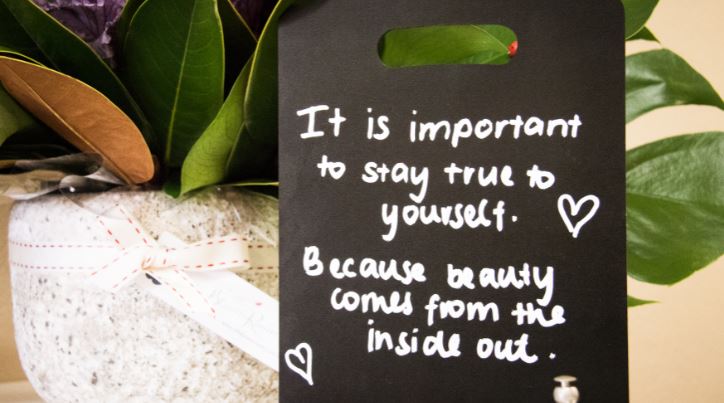 It is important
to stay true to
yourself.
Because beauty
comes from the
inside out.